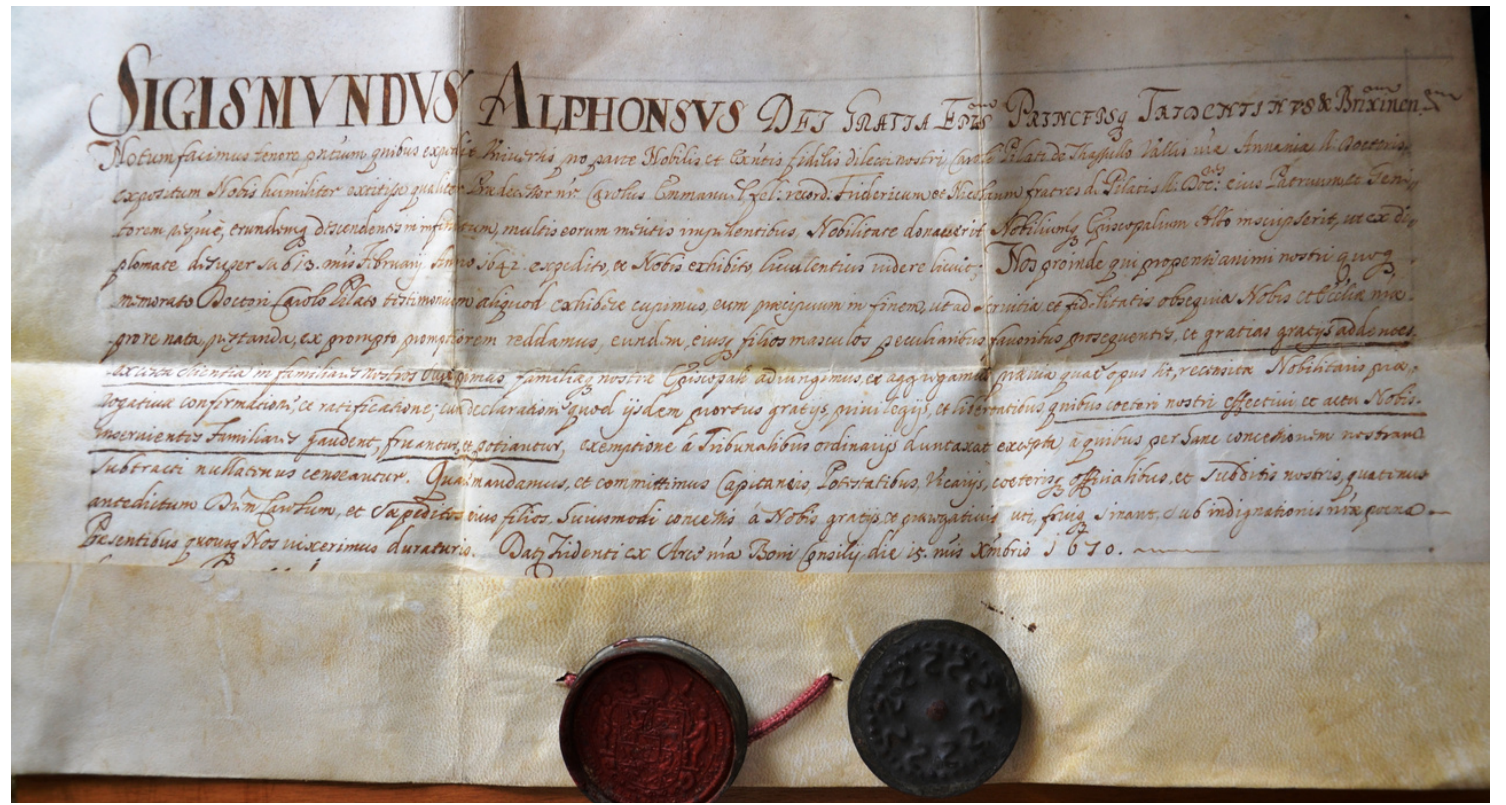 SIGISMVNDVS ALPHONSVS DEI GRATIA EPÜS PRINCEPSq TRIDENTINVS & Brixinen.
Notum facimus tenore pntium quibus expedit Vniversis, pro parte Nobilis, et fidelis dilecti nostri Caroli Pilati de Thassullo Vallis nrae Annaniae II. Doctoris,
expositum Nobis humiliter extitisse qualiter Praedecessor nr Carolus Emmanuel fel: record: Fridericum et Nicolaum fratres de Pilatis II. Doc: eius Patruum, et Geni,
torem, eorundemq descendentes in infinitum, multis eorum meritis impellentibus, Nobilitate donaverit, Nobiliumq Episcopalium Albo inscripserit, ut ex di,
plomate desuper sub 13. mis Februarij Anno 1642. expedito, et Nobis exhibito, luculentius videre licuit; Nos proinde qui propensi animi nostri quoq
memorato Doctori Carolo Pilato testimonium aliquod exhibere cupimus, eum praecipuum in finem, ut ad servitia et fidelitatis obsequia Nobis et Ecclae nrae
pro re nata praestanda, ex prompto promptiorem reddamus, eundem, eiusq filios masculos peculiaribus favoribus prosequentes, et gratias gratijs addentes
ex certa scientia in familiares nostros assumimus familiaeq nostrae Episcopali adiungimus, et aggregamus praevia quae opus sit, recensita Nobilitatis prae,
rogativae confirmatione, et ratificatione, cum declaratione quod ijsdem prorsus gratijs, privilegijs, et libertatibus quibus coeteri nostri effectivi et actu Nobis
inservientes Familiares gaudent, fruantur, et potiantur, exemptione à Tribunalibus ordinarijs duntaxat excepta, à quibus per hanc concessionem nostram
subtracti nullatenus censeantur. Quare mandamus, et committimus Capitaneis, Potestatibus, Vicarijs, coeterisq officialibus, et subditis nostris, quatinus
antedictum Dnm Carolum, et eius filios, huiusmodi concessis à Nobis gratijs, et praerogativis uti, fruiq sinant, sub indignationis nrae poena
Praesentibus quousq Nos vixerimus duraturis. Dat Tridenti ex Arce nra Boni Consilij, die 15. mis Xmbris 1670.